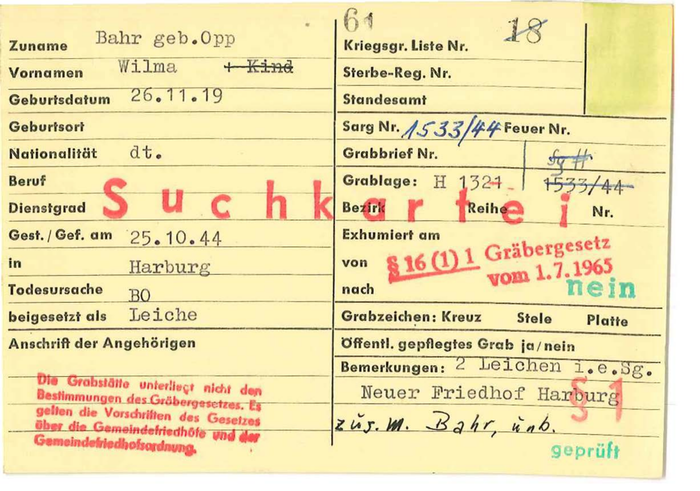 61
18
Zuname Bahr geb.Opp
Vornamen Wilma + Kind
Geburtsdatum 26.11.19
Geburtsort
Nationalität dt.
Beruf
Dienstgrad
Gest./Gef. am 25.10.44
in Harburg
Todesursache BO
beigesetzt als Leiche
Anschrift der Angehörigen
Die Grabstätte unterliegt nicht den
Bestimmungen des Gräbergesetzes. Es
gelten die Vorschriften des Gesetzes
über die Gemeindefriedhöfe und der
Gemeindefriedhofsordnung.
Suchkartei
Kriegsgr. Liste Nr.
Sterbe-Reg. Nr.
Standesamt
Sarg Nr. 1533/44 Feuer Nr.
Grabbrief Nr. Sg #
Grablage: H 1321 1533/44
Bezirk Reihe Nr.
Exhumiert am
von
nach
§ 16 (1) 1 Gräbergesetz
vom 1.7.1965
nein
Grabzeichen: Kreuz Stele Platte
Öffentl. gepflegtes Grab ja/nein
Bemerkungen: 2 Leichen i.e.Sg.
Neuer Friedhof Harburg
§ 1
zus. m. Bahr, unb.
geprüft